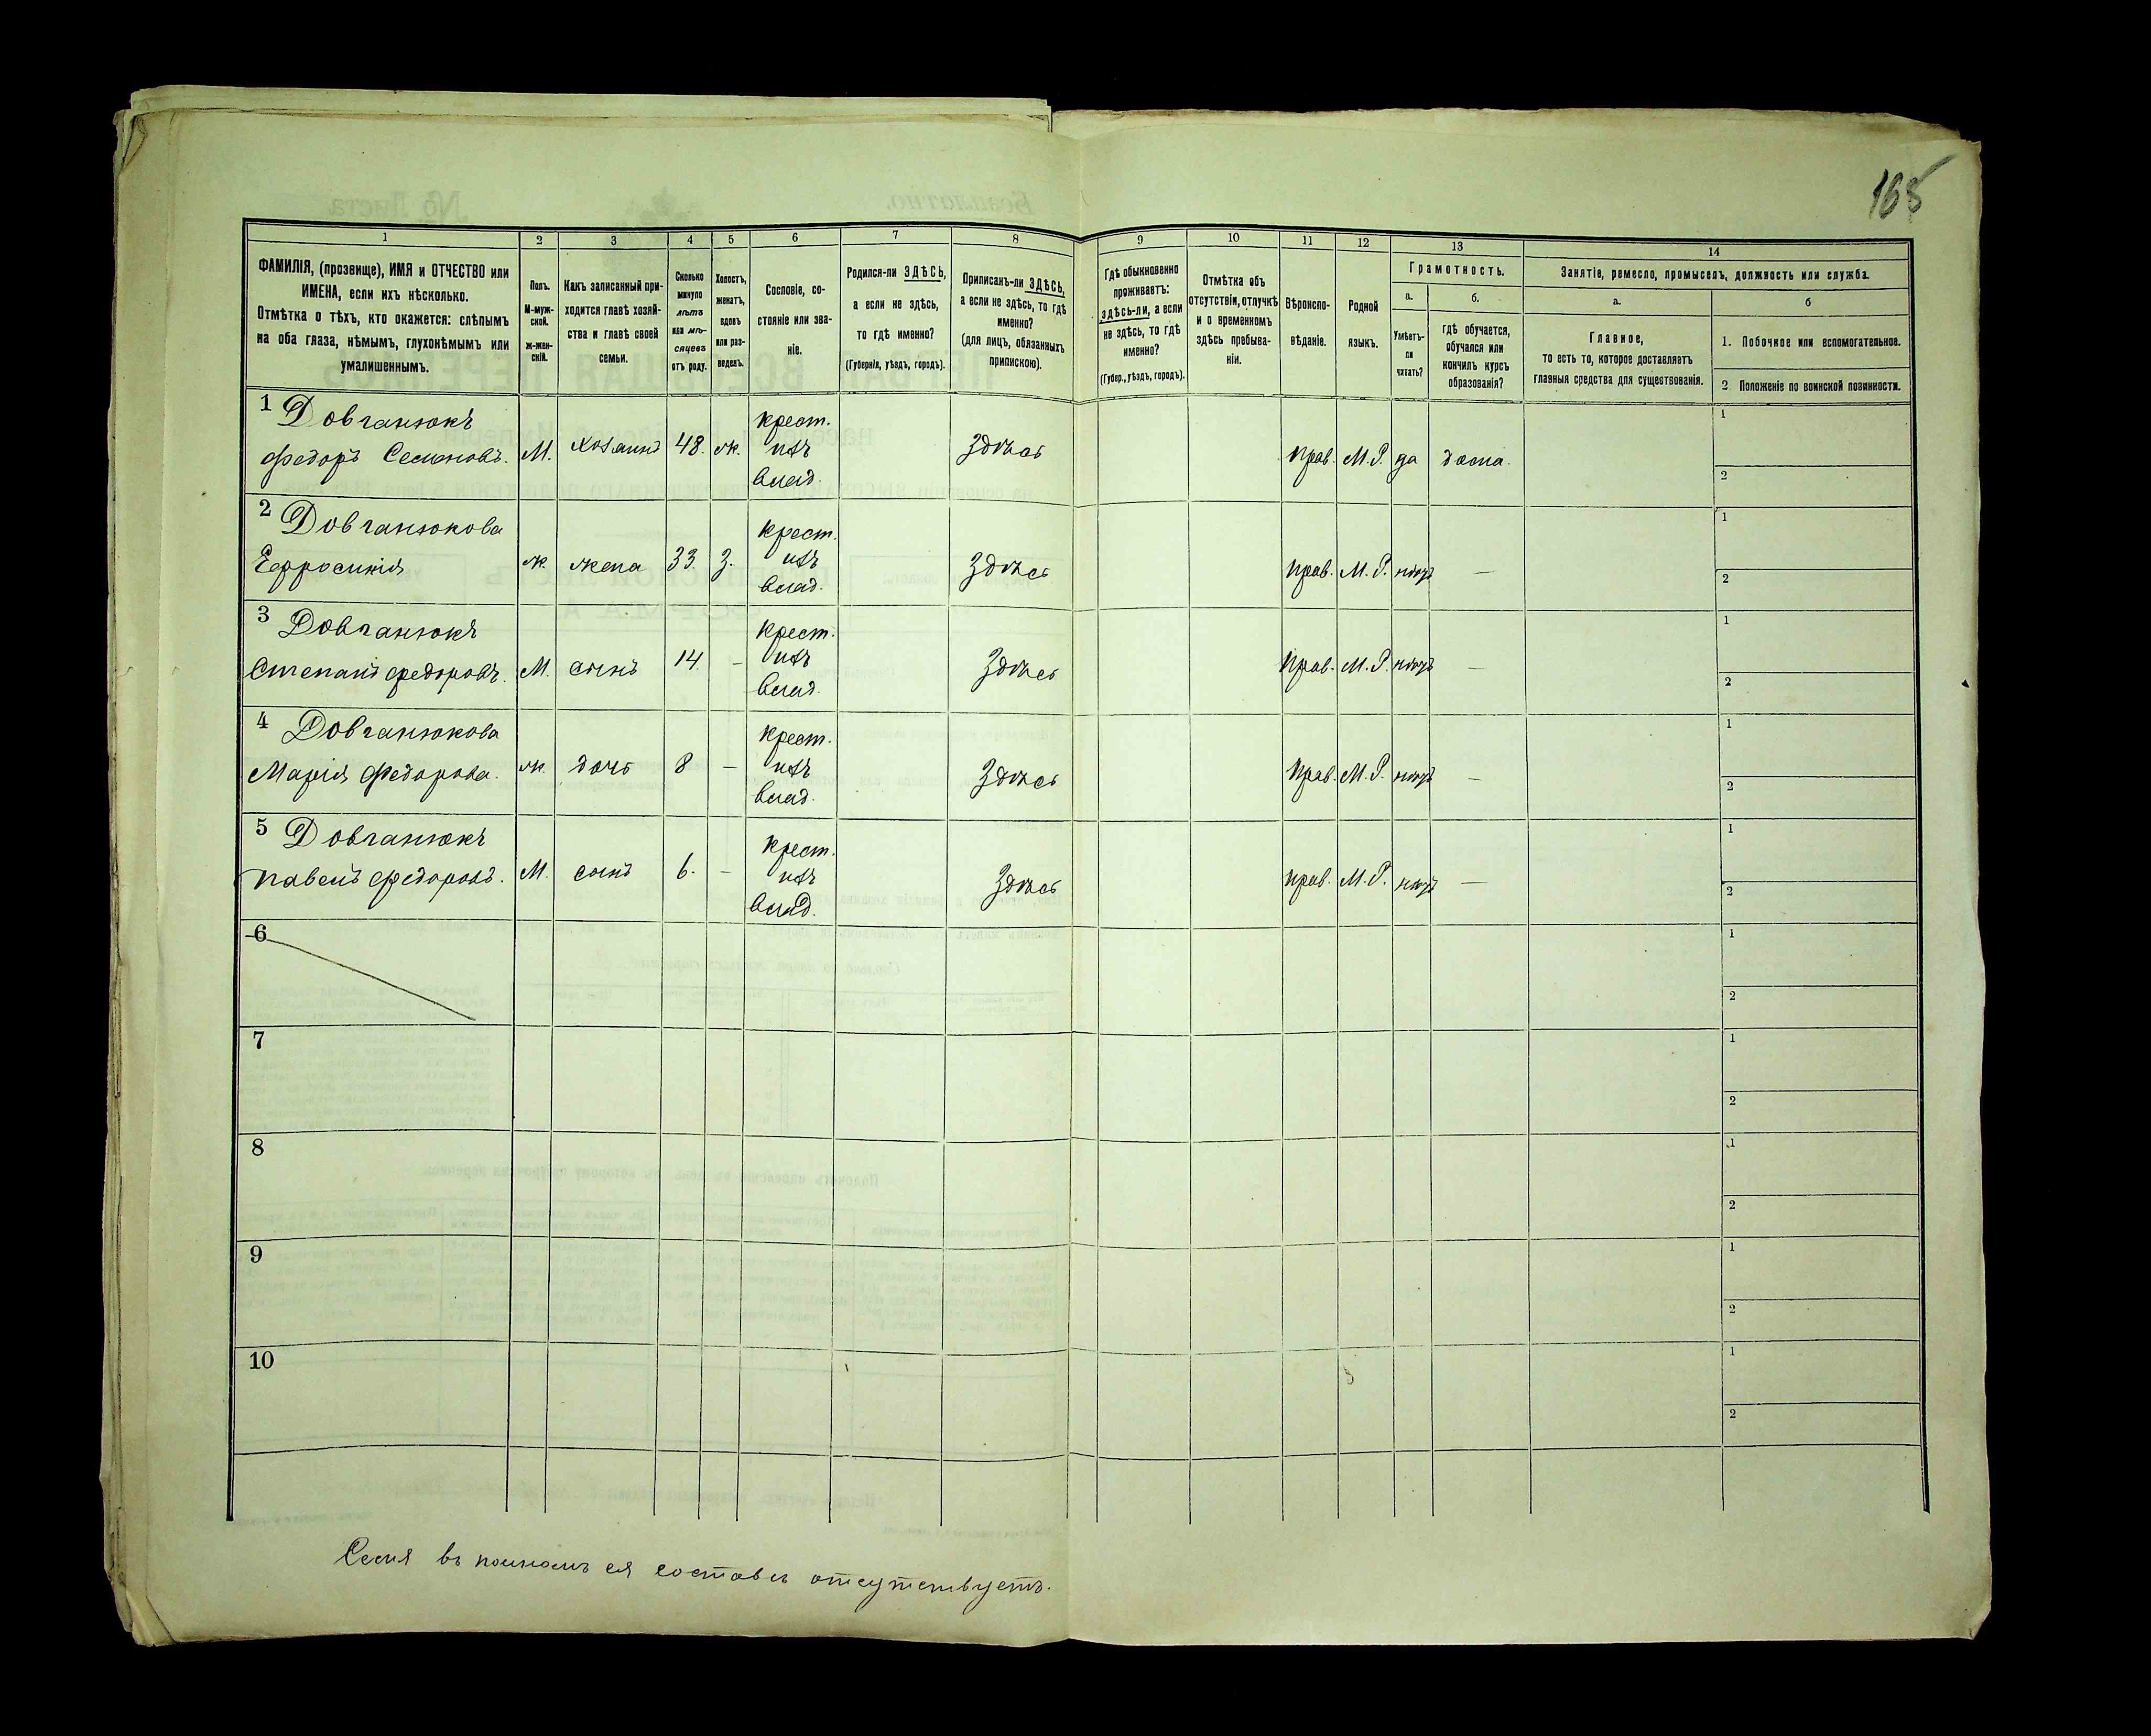 165
1 2 3 4 5 6 7 8 9 10 11 12 13 14
ФАМИЛІЯ, (прозвище), ИМЯ и ОТЧЕСТВО или
ИМЕНА, если ихъ нѣсколько.
Отмѣтка о тѣхъ, кто окажется: слѣпымъ
на оба глаза, нѣмымъ, глухонѣмымъ или
умалишеннымъ.
Полъ.
М-муж-
ской.
ж-жен-
скій.
Какъ записанный при-
ходится главѣ хозяй-
ства и главѣ своей
семьи.
Сколько
минуло
лѣтъ
или мѣ-
сяцевъ
отъ роду.
Холостъ,
женатъ,
вдовъ
или раз-
веденъ.
Сословіе, со-
стояніе или зва-
ніе.
Родился-ли ЗДѢСЬ,
а если не здѣсь,
то гдѣ именно?
(Губернія, уѣздъ, городъ).
Приписанъ-ли ЗДѢСЬ,
а если не здѣсь, то гдѣ
именно?
(для лицъ, обязанныхъ
припискою).
Гдѣ обыкновенно
проживаетъ:
здѣсь-ли, а если
не здѣсь, то гдѣ
именно?
(Губер., уѣздъ, городъ).
Отмѣтка объ
отсутствіи, отлучкѣ
и о временномъ
здѣсь пребыва-
ніи.
Вѣроиспо-
вѣданіе.
Родной
языкъ.
Грамотность.
а.
Умѣетъ-
ли
читать?
б.
гдѣ обучается,
обучался или
кончилъ курсъ
образованія?
Занятіе, ремесло, промыселъ, должность или служба.
а.
Главное,
то есть то, которое доставляетъ
главныя средства для существованія.
б
1. Побочное или вспомогательное.
2 Положеніе по воинской повинности.
1 Довганюкъ
Федоръ Семеновъ. М. хозяинъ 48. ж. крест. изъ влад. Здѣсь прав. М.Р. да дома.
1
2
2 Довганюкова
Ефросинія ж жена 33. З. крест. изъ влад. Здѣсь прав. М.Р. нѣтъ —
1
2
3 Довганюкъ
Степанъ Федоровъ. М. сынъ 14. — крест. изъ влад. Здѣсь прав. М.Р. нѣтъ —
1
2
4 Довганюкова
Марія Федорова. ж. дочь 8 — крест. изъ влад. Здѣсь прав. М.Р. нѣтъ —
1
2
5 Довганюкъ
Павелъ Федоровъ. М. сынъ 6. — крест. изъ влад. Здѣсь прав. М.Р. нѣтъ —
1
2
6
1
2
7
1
2
8
1
2
9
1
2
10
1
2
Семя въ полномъ ея составѣ отсутствуетъ.